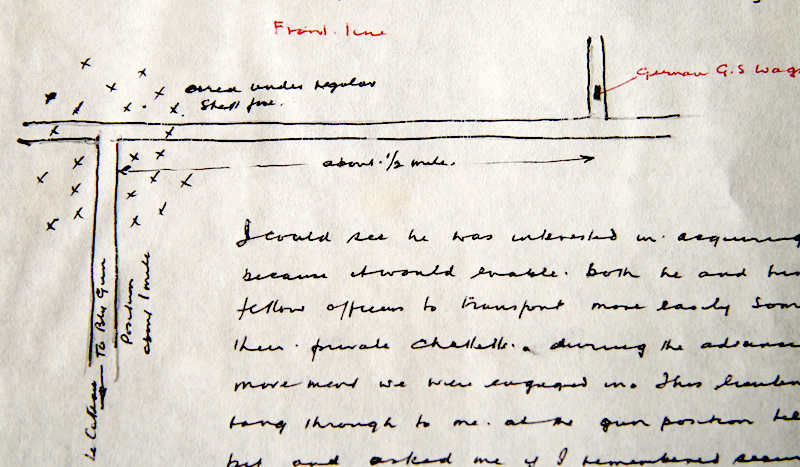 Front line
German G.S Wag
area under regular
Shell fire.
about 1/2 mile.
To Bty Gun
Position
about 1 mile
Le Cateau
I could see he was interested in acquiring
because it would enable. both he and his
fellow officers to transport more easily som
their private Chattells. during the advance
movement we were engaged in. This lieuten
rang through to me. at the gun position tel
pit and asked me if I remembered seein